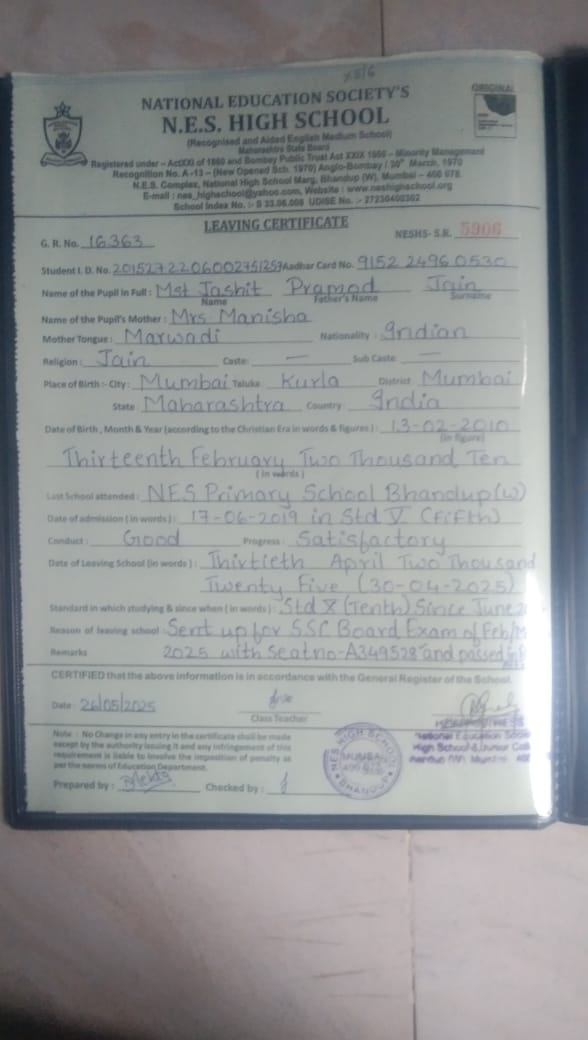 ORIGINAL
NATIONAL EDUCATION SOCIETY'S
N.E.S. HIGH SCHOOL
(Recognised and Aided English Medium School)
Maharashtra State Board
Registered under – ActXXI of 1860 and Bombay Public Trust Act XXIX 1950 – Minority Management
Recognition No. A-13 – (New Opened Sch. 1970) Anglo-Bombay / 30th March, 1970
N.E.S. Complex, National High School Marg, Bhandup (W), Mumbai – 400 078.
E-mail : nes_highschool@yahoo.com, Website : www.neshighschool.org
School Index No. :- S 33.06.008 UDISE No. :- 27230400302
LEAVING CERTIFICATE
G. R. No. 16363 NESHS- S.R. 5906
Student I. D. No. 2015272206002751259 Aadhar Card No. 9152 2496 0530
Name of the Pupil in Full : Mst Jashit Pramod Jain
Name Father's Name Surname
Name of the Pupil's Mother : Mrs Manisha
Mother Tongue : Marwadi Nationality : Indian
Religion : Jain Caste: — Sub Caste: —
Place of Birth :- City: Mumbai Taluka Kurla District Mumbai
State Maharashtra Country: India
Date of Birth, Month & Year (according to the Christian Era in words & figures ) : 13-02-2010
(in figure)
Thirteenth February Two Thousand Ten
( in words )
Last School attended: NES Primary School Bhandup(w)
Date of admission ( in words) : 17-06-2019 in Std V (Fifth)
Conduct : Good Progress: Satisfactory
Date of Leaving School (in words) : Thirtieth April Two Thousand
Twenty Five (30-04-2025)
Standard in which studying & since when ( in words) : Std X (Tenth) Since June
Reason of leaving school : Sent up for SSC Board Exam of Feb/M
Remarks 2025 with Seat no-A349528 and passed
CERTIFIED that the above information is in accordance with the General Register of the School.
Date : 26/05/2025
Class Teacher
Note : No Change in any entry in the certificate shall be made
except by the authority issuing it and any infringement of this
requirement is liable to involve the imposition of penalty as
per the norms of Education Department.
NES HIGH SCHOOL
MUMBAI
BHANDUP
National Education
High School & Junior
Mumbai
Prepared by : Checked by :